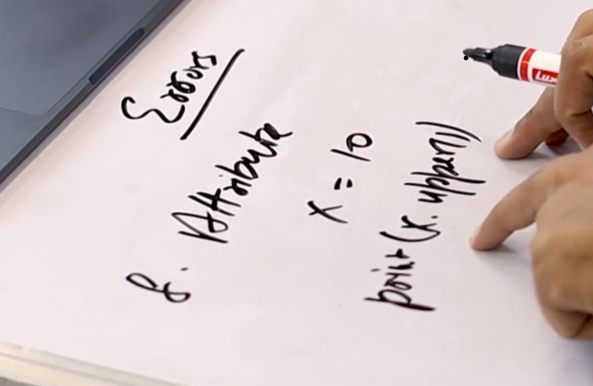 Errors
8. Attribute
x = 10
print (x. upper())
Lux